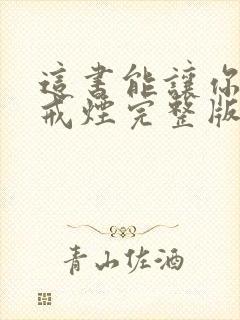 這書能讓你
戒煙完整版
青山佐酒